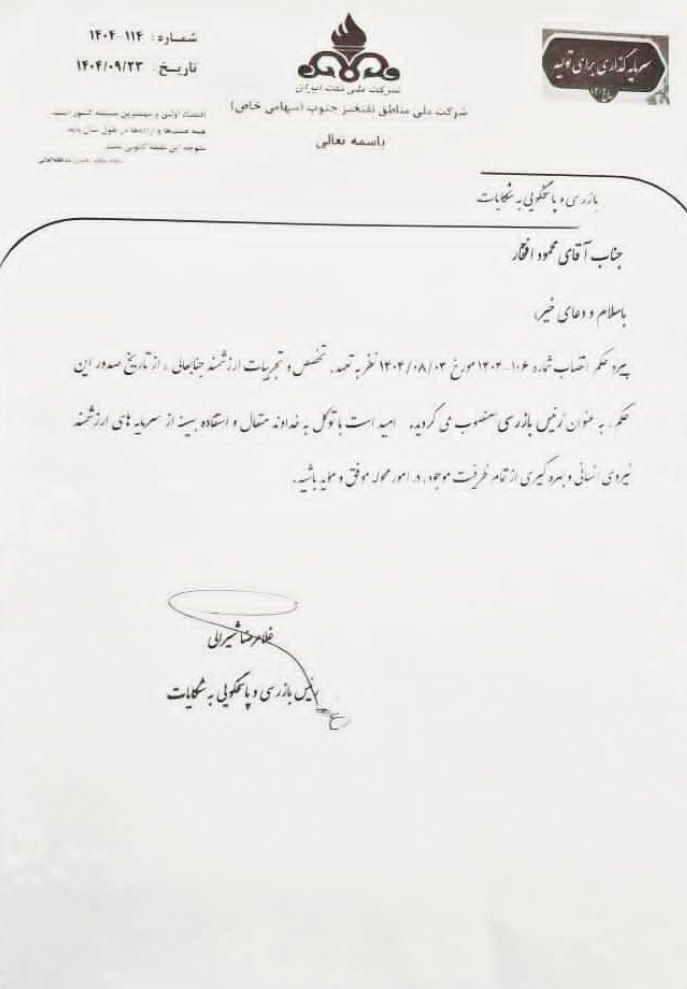 شماره: ۱۱۴-۱۴۰۴
تاریخ: ۱۴۰۴/۰۹/۲۳
اقتصاد اولین و مهمترین مسئله کشور است.
شرکت ملی نفت ایران
شرکت ملی مناطق نفتخیز جنوب (سهامی خاص)
باسمه تعالی
سرمایه گذاری برای تولید
بازرسی و پاسخگویی به شکایات
جناب آقای محمود افتخار
باسلام و دعای خیر؛
پیرو حکم انتصاب شماره ۱۰۶-۱۴۰۴ مورخ ۱۴۰۴/۰۸/۰۳ نظر به تعهد، تخصص و تجربیات ارزشمند جنابعالی، از تاریخ صدور این
حکم، به عنوان رئیس بازرسی منصوب می گردید. امید است با توکل به خداوند متعال و استفاده بهینه از سرمایه های ارزشمند
نیروی انسانی و بهره گیری از تمام ظرفیت موجود، در امور محوله موفق و موید باشید.
غلامرضا شیرالی
رئیس بازرسی و پاسخگویی به شکایات